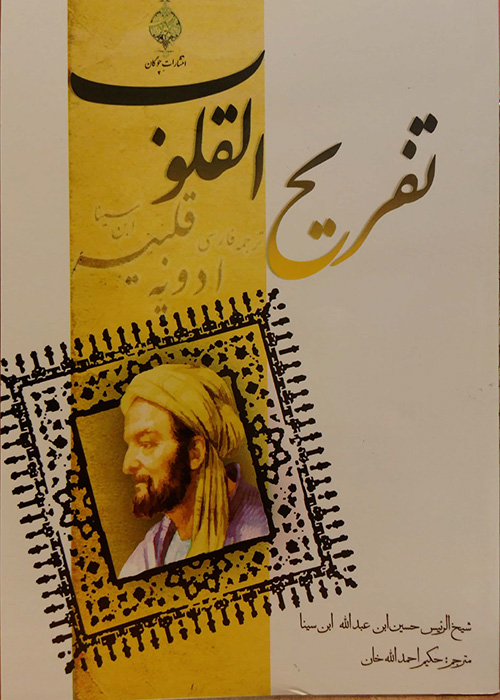 انتشارات چوگان
تفریح القلوب
ترجمه فارسی
ادویه قلبیه
ابن سینا
شیخ الرئیس حسین ابن عبدالله ابن سینا
مترجم: حکیم احمدالله خان